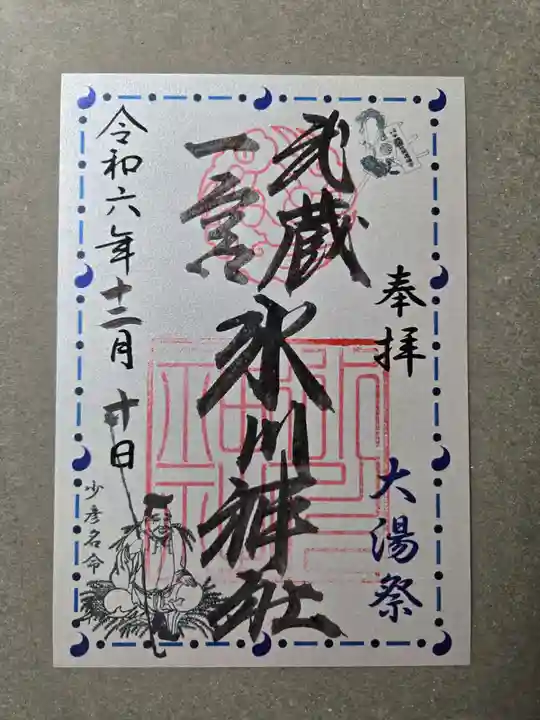 奉拝
大湯祭
武蔵
一宮
氷川神社
令和六年十二月十日
少彦名命